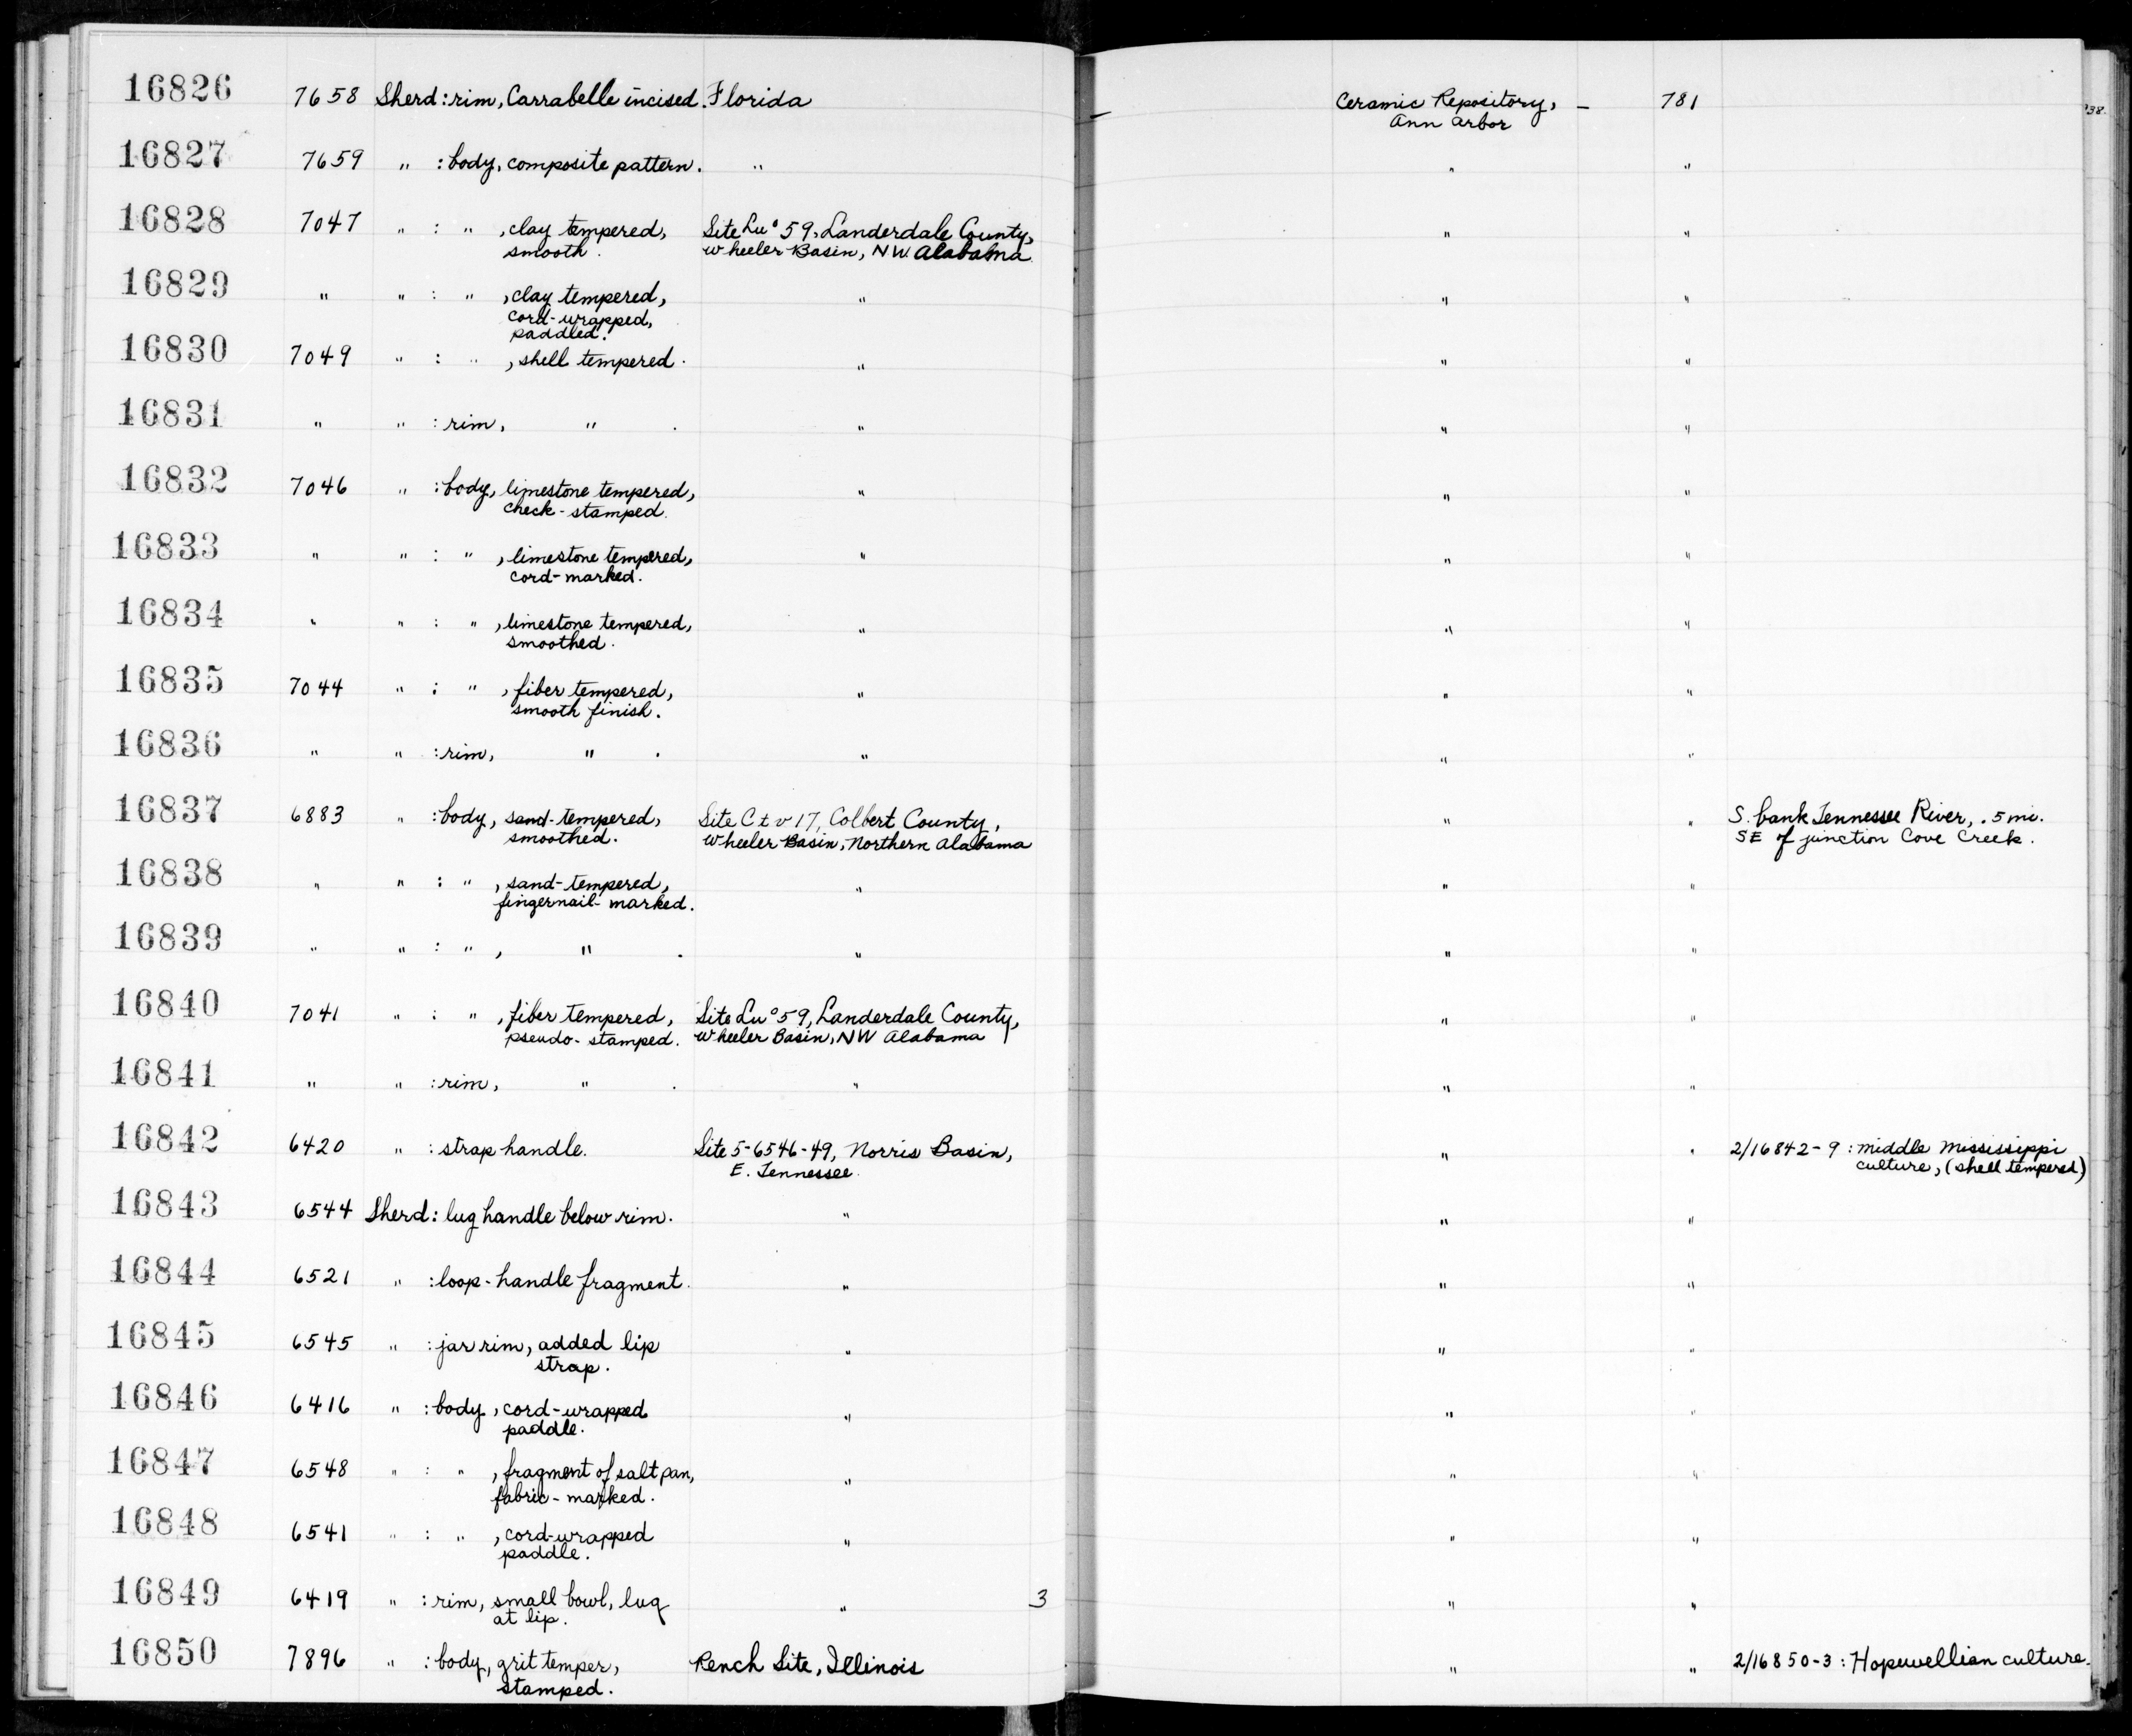 16826 7658 Sherd: rim, Carrabelle incised. Florida — Ceramic Repository, — 781
Ann Arbor
16827 7659 " : body, composite pattern. " " "
16828 7047 " : " , clay tempered, Site Lu°59, Landerdale County, " "
smooth. Wheeler Basin, NW. Alabama
16829 " " : " , clay tempered, " " "
cord-wrapped,
paddled.
16830 7049 " : " , shell tempered. " " "
16831 " " : rim, " . " " "
16832 7046 " : body, limestone tempered, " " "
check-stamped.
16833 " " : " , limestone tempered, " " "
cord-marked.
16834 " " : " , limestone tempered, " " "
smoothed.
16835 7044 " : " , fiber tempered, " " "
smooth finish.
16836 " " : rim, " . " " "
16837 6883 " : body, sand-tempered, Site Ctv17, Colbert County, " " S. bank Tennessee River, .5 mi.
smoothed. Wheeler Basin, Northern Alabama SE of junction Cove Creek.
16838 " " : " , sand-tempered, " " "
fingernail-marked.
16839 " " : " , " . " " "
16840 7041 " : " , fiber tempered, Site Lu°59, Landerdale County, " "
pseudo-stamped. Wheeler Basin, NW Alabama
16841 " " : rim, " . " " "
16842 6420 " : strap handle. Site 5-6546-49, Norris Basin, " " 2/16842-9 : middle Mississippi
E. Tennessee. culture, (shell tempered)
16843 6544 Sherd: lug handle below rim. " " "
16844 6521 " : loop-handle fragment. " " "
16845 6545 " : jar rim, added lip " " "
strap.
16846 6416 " : body, cord-wrapped " " "
paddle.
16847 6548 " : " , fragment of salt pan, " " "
fabric-marked.
16848 6541 " : " , cord-wrapped " " "
paddle.
16849 6419 " : rim, small bowl, lug " 3 " "
at lip.
16850 7896 " : body, grit temper, Rench Site, Illinois " " 2/16850-3 : Hopewellian culture.
stamped.